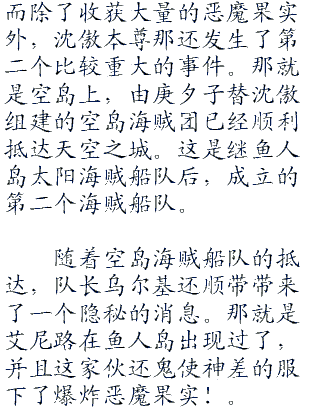 而除了收获大量的恶魔果实
外，沈傲本尊那还发生了第
二个比较重大的事件。那就
是空岛上，由庚夕子替沈傲
组建的空岛海贼团已经顺利
抵达天空之城。这是继鱼人
岛太阳海贼船队后，成立的
第二个海贼船队。
随着空岛海贼船队的抵
达，队长乌尔基还顺带带来
了一个隐秘的消息。那就是
艾尼路在鱼人岛出现过了，
并且这家伙还鬼使神差的服
下了爆炸恶魔果实！。